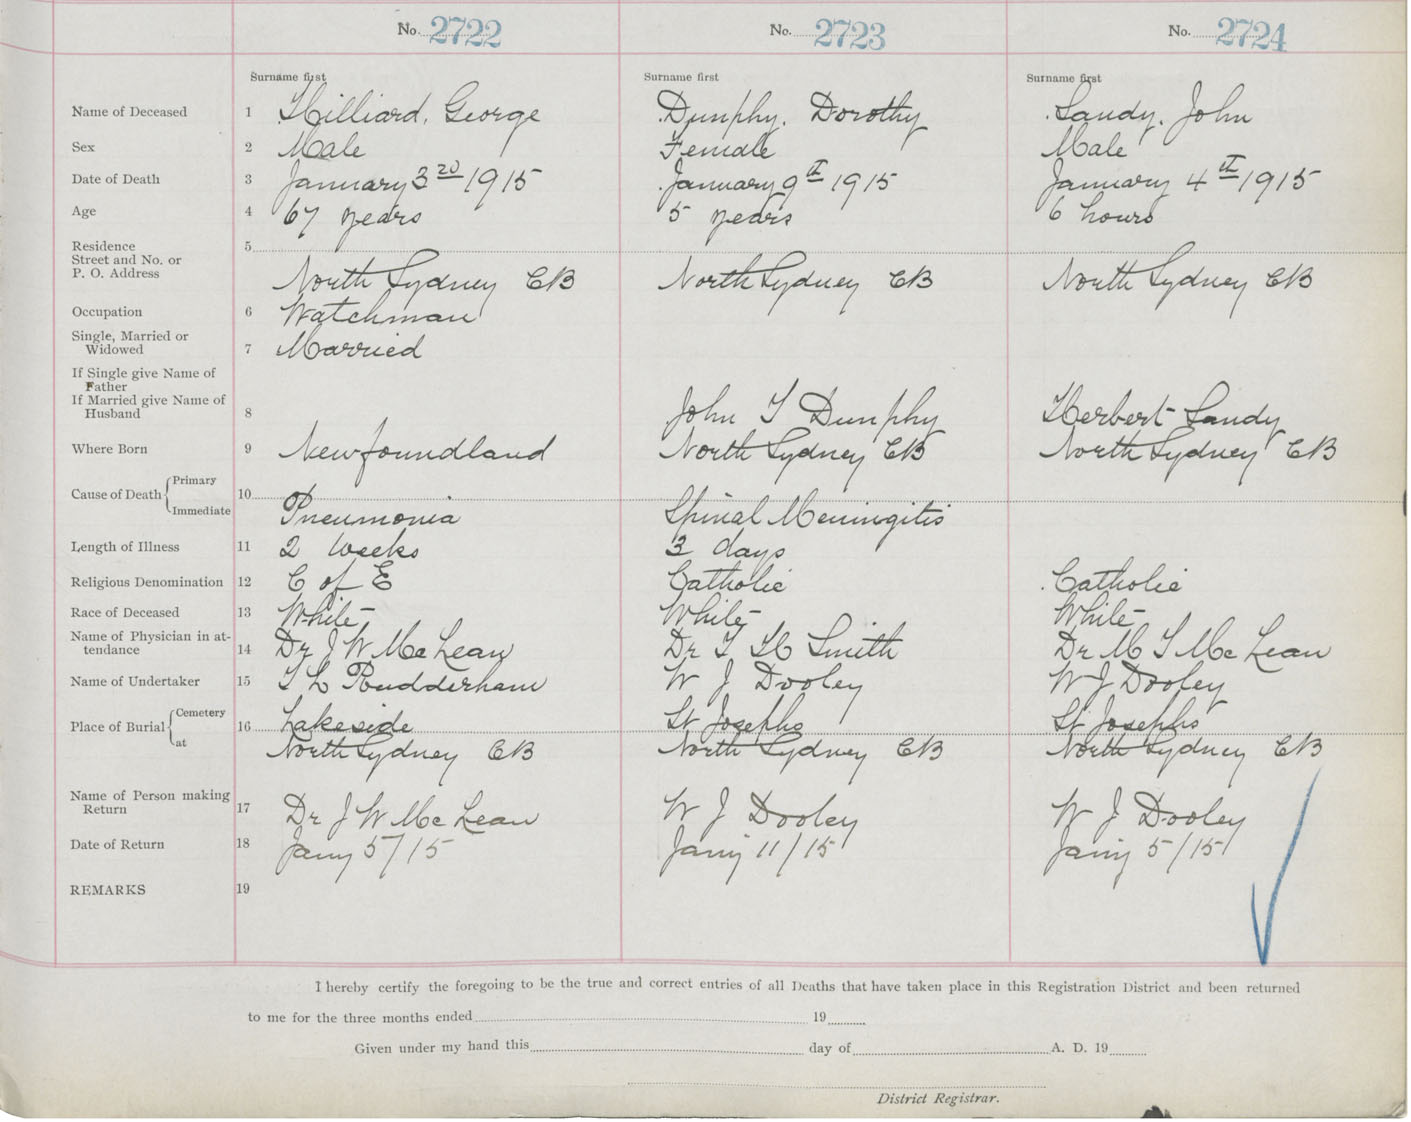 No. 2722 No. 2723 No. 2724
Surname first Surname first Surname first
Name of Deceased 1 Hilliard, George Dunphy, Dorothy Sandy, John
Sex 2 Male Female Male
Date of Death 3 January 3rd 1915 January 9th 1915 January 4th 1915
Age 4 67 years 5 years 6 hours
Residence 5
Street and No. or
P. O. Address North Sydney CB North Sydney CB North Sydney CB
Occupation 6 Watchman
Single, Married or
Widowed 7 Married
If Single give Name of
Father
If Married give Name of
Husband 8 John T Dunphy Herbert Sandy
Where Born 9 Newfoundland North Sydney CB North Sydney CB
Cause of Death Primary 10
Immediate Pneumonia Spinal Meningitis
Length of Illness 11 2 weeks 3 days
Religious Denomination 12 C of E Catholic Catholic
Race of Deceased 13 White White White
Name of Physician in at-
tendance 14 Dr J W McLean Dr T H Smith Dr M T McLean
Name of Undertaker 15 T L Rudderham W J Dooley W J Dooley
Place of Burial Cemetery 16 Lakeside St Josephs St Josephs
at North Sydney CB North Sydney CB North Sydney CB
Name of Person making
Return 17 Dr J W McLean W J Dooley W J Dooley
Date of Return 18 Jany 5/15 Jany 11/15 Jany 5/15
REMARKS 19
I hereby certify the foregoing to be the true and correct entries of all Deaths that have taken place in this Registration District and been returned
to me for the three months ended 19
Given under my hand this day of A. D. 19
District Registrar.